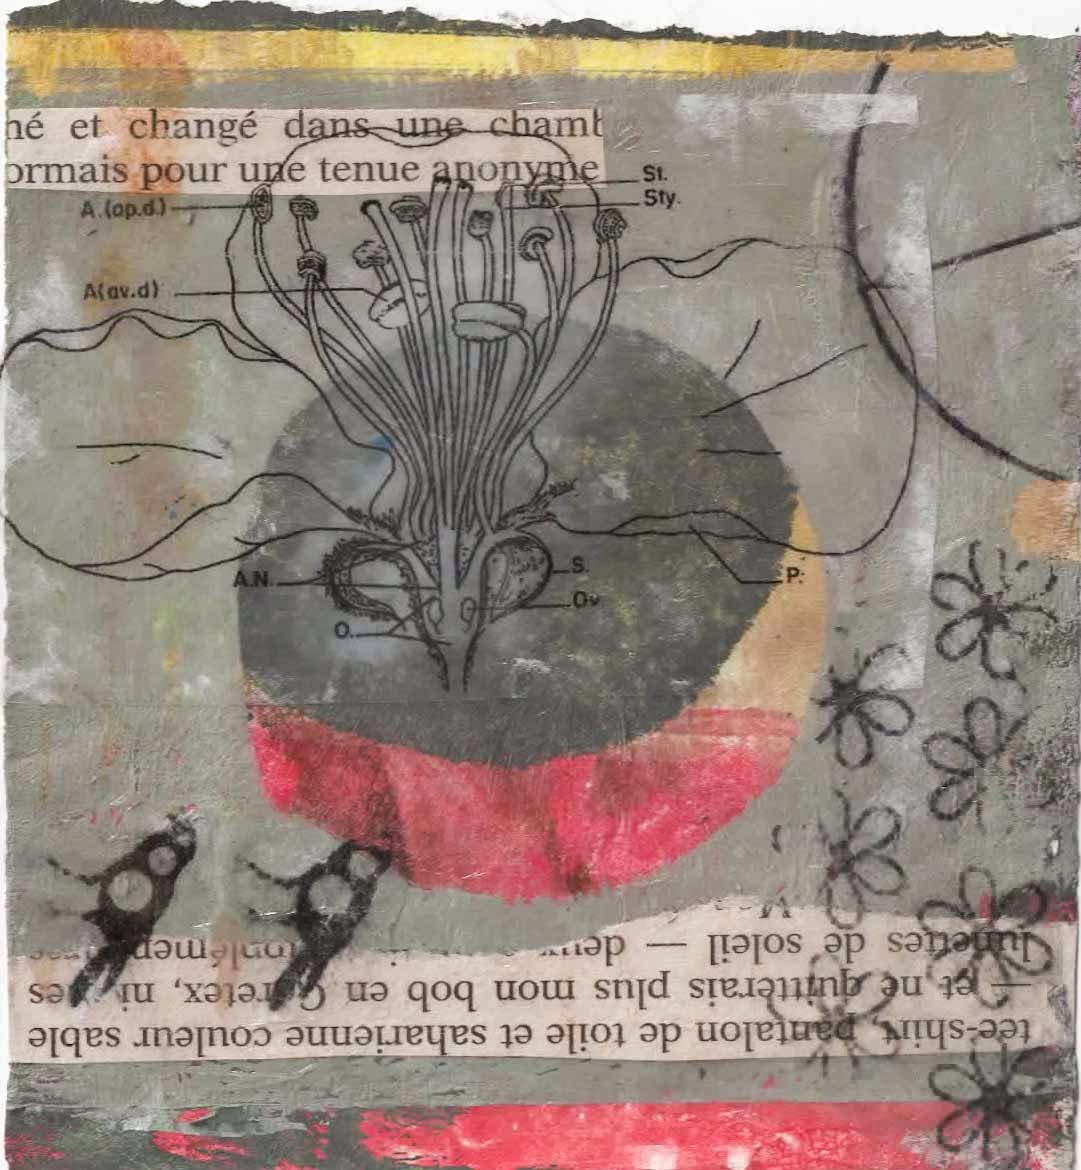 né et changé dans une chamb
ormais pour une tenue anonyme
St.
Sty.
A.(op.d.)
A(av.d)
A.N.
S.
P.
Ov
O.
tee-shirt, pantalon de toile et saharienne couleur sable
— et ne quitterais plus mon bob en Goretex, ni mes
lunettes de soleil —